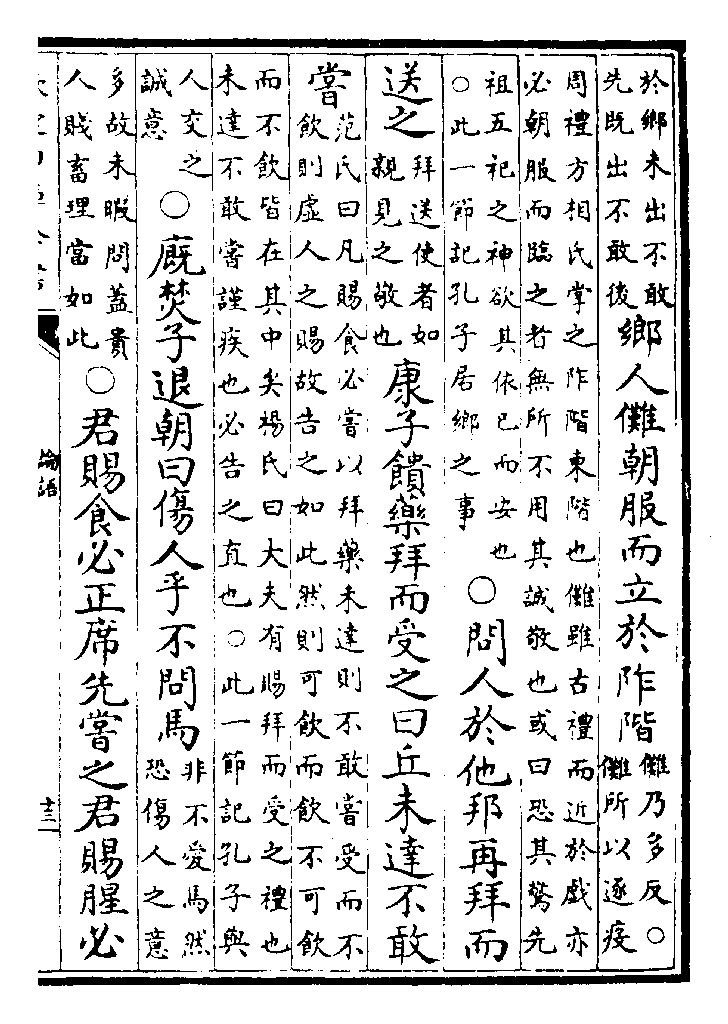 於鄉未出不敢
先既出不敢後
鄉人儺朝服而立於阼階
儺乃多反○
儺所以逐疫
周禮方相氏掌之阼階東階也儺雖古禮而近於戲亦
必朝服而臨之者無所不用其誠敬也或曰恐其驚先
祖五祀之神欲其依已而安也
○此一節記孔子居鄉之事
○問人於他邦再拜而
送之
拜送使者如
親見之敬也
康子饋藥拜而受之曰丘未達不敢
嘗
范氏曰凡賜食必嘗以拜藥未達則不敢嘗受而不
飲則虛人之賜故告之如此然則可飲而飲不可飲
而不飲皆在其中矣楊氏曰大夫有賜拜而受之禮也
未達不敢嘗謹疾也必告之直也○此一節記孔子與
人交之
誠意
○廐焚子退朝曰傷人乎不問馬
非不愛馬然
恐傷人之意
多故未暇問蓋貴
人賤畜理當如此
○君賜食必正席先嘗之君賜腥必
論語
十三